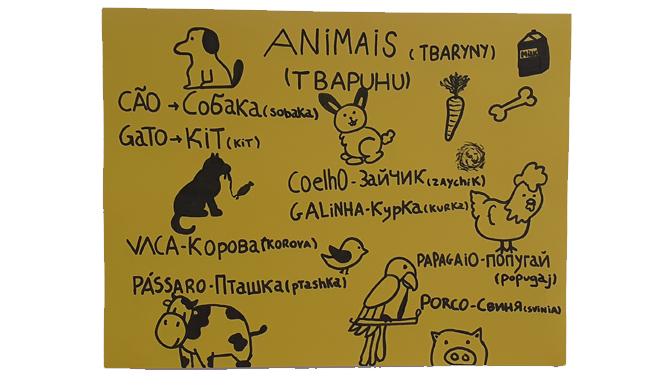 ANiMAiS (TBARYNY)
(ТВАРИНИ)
MiLK
CÃO → Собака (sobaka)
GaTO → KiT (KiT)
Coelho - Зайчик (zaychiK)
GALiNHA - Курка (KURKa)
VACA - Корова (KOROVA)
PAPAGAiO - попугай
(popugaj)
PÁSSARO - Пташка (ptashka)
PORCO - Свиня (svinia)